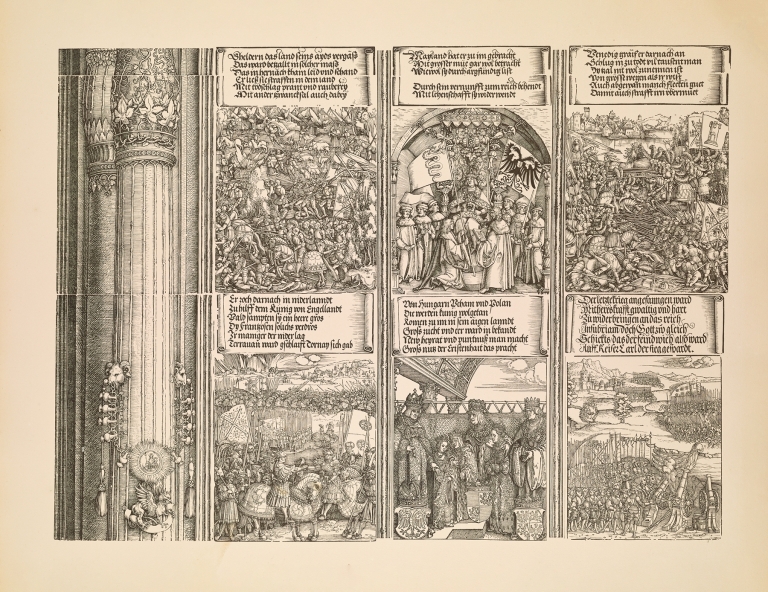 Gheldern das land seins ayds vergaß
Das ward bezallt in solicher maß
Das in hernach kham leid und schand
Er ließ sie straffen in dem land
Mit todschlag prant und rauberey
Mit ander zwanchsal auch dabey
Mayland hat er zu im gebracht
Mit grosser müe gar vol betracht
Wievol sy durch
list
Durch sein vernunfft zum reich behendt
Mit lehenschafft
Venedig graif er darnach an
Schlug in zu todt vil tausent man
So
ist
Von
Auch abgewan manch flecken guet
Damit auch strafft irn ubermuet
Er zoch darnach in niderlanndt
Zu hilff dem Kunig von Engellandt
Bald sampten sy ein heere gros
Dy Frantzosen solichs verdros
Ir mainger der nider lag
Terravan ward gschlaift darnay sich gab
Von Hungarn Beham und Polan
Die werden kunig
Komen zu im in sein aigen lanndt
Groß zucht und eer ward in bekandt
New heyrat und puntnuß man macht
Groß nutz der Cristenhait das pracht
Der letzte krieg angefangen ward
Mit heres krafft gwaltig und hart
Zu widerbringen an das reich
doch Gott
Schickts das der feind wich
Kaiser Carl der sieg